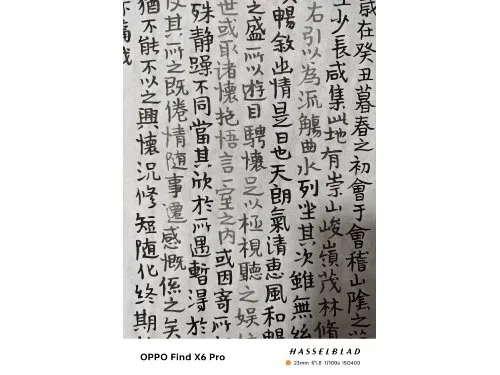 歲在癸丑暮春之初會于會稽山陰之
少長咸集此地有崇山峻嶺茂林脩
右引以為流觴曲水列坐其次雖無絲
暢敘幽情是日也天朗氣清惠風和暢
之盛所以遊目騁懷足以極視聽之娛
世或取諸懷抱悟言一室之內或因寄所
殊靜躁不同當其欣於所遇暫得於
及其所之既倦情隨事遷感慨係之矣
猶不能不以之興懷況修短随化終期
不痛哉
OPPO Find X6 Pro
HASSELBLAD
23mm f/1.8 1/100s ISO400